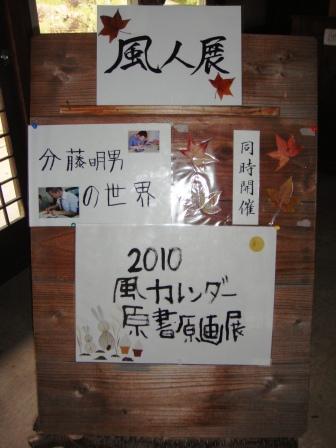 風人展
分藤明男
の世界
同時開催
2010
風カレンダー
原書原画展